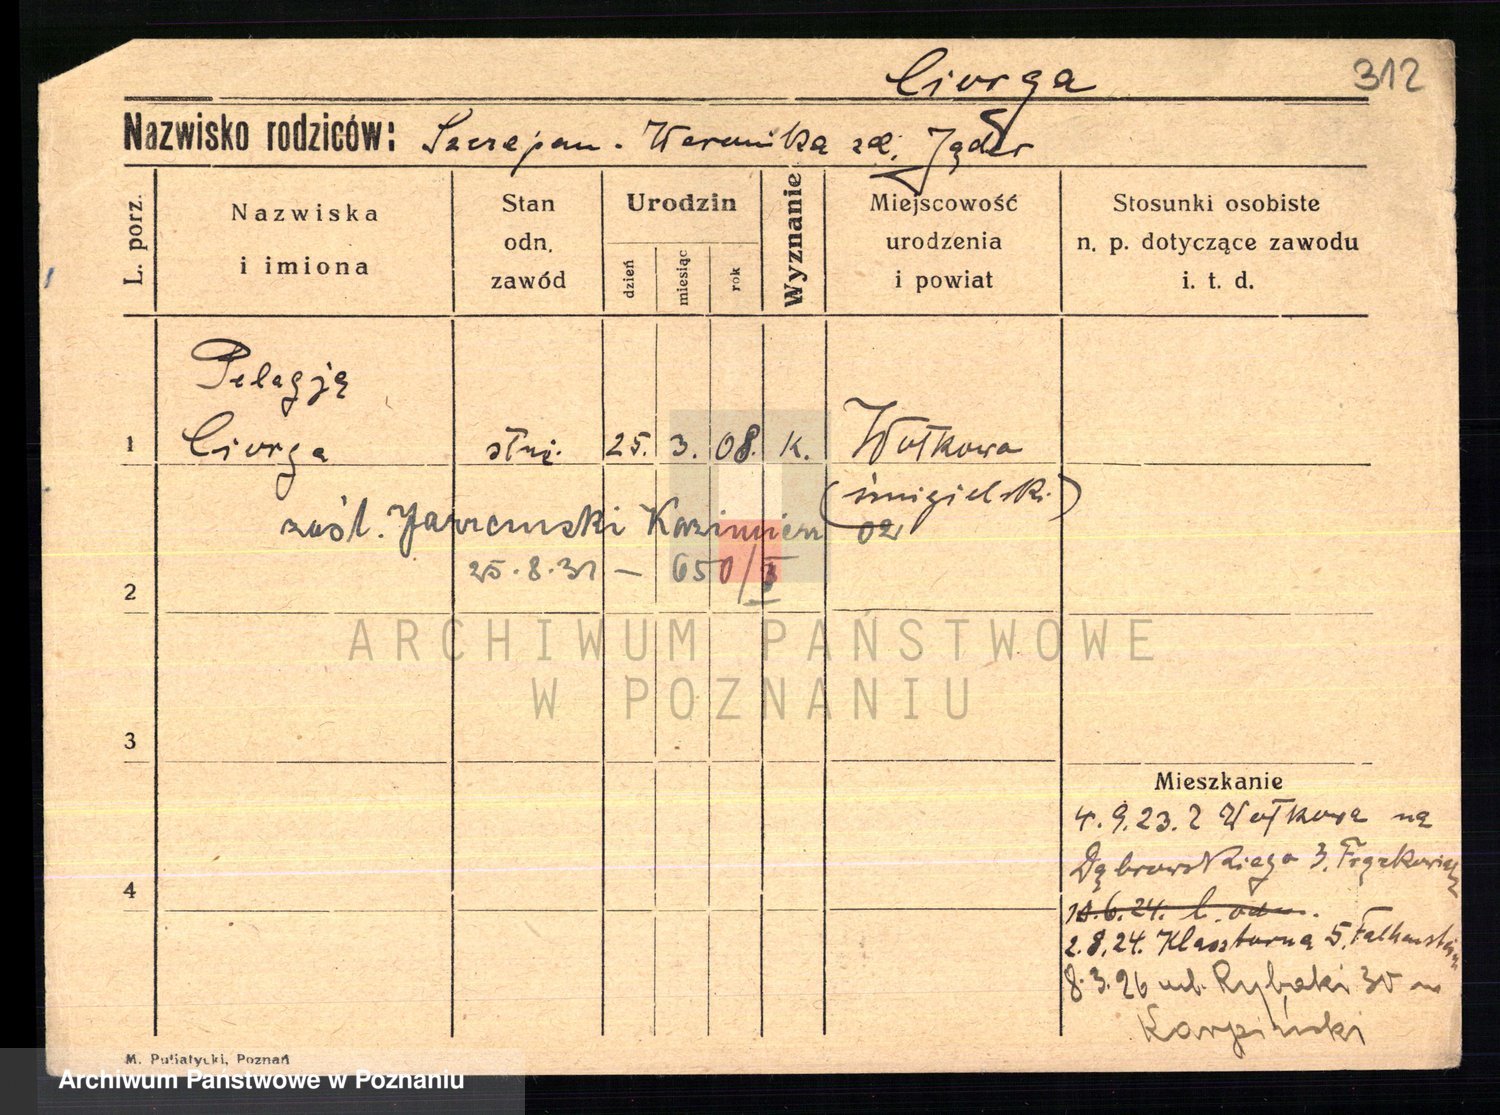 Ciorga 312
Nazwisko rodziców: Szczepan - Weronika zd. Jąder
L. porz.
Nazwiska
i imiona
Stan
odn.
zawód
Urodzin
dzień
miesiąc
rok
Wyznanie
Miejscowość
urodzenia
i powiat
Stosunki osobiste
n. p. dotyczące zawodu
i. t. d.
Pelagja
1 Ciorga służ. 25. 3. 08. K. Wolkowo
(śmigielski)
zaśl. Kazimierz
25.8.31 – 650/I
2
ARCHIWUM PAŃSTWOWE
W POZNANIU
3
Mieszkanie
4.9.23. z Wolkowa na
Dąbrowskiego 3.
4
10.6.24.
2.8.24. Klasztorna 5.
8.3.26 ul. Rybaki 30
Karpiński
M. Putiatycki, Poznań
Archiwum Państwowe w Poznaniu